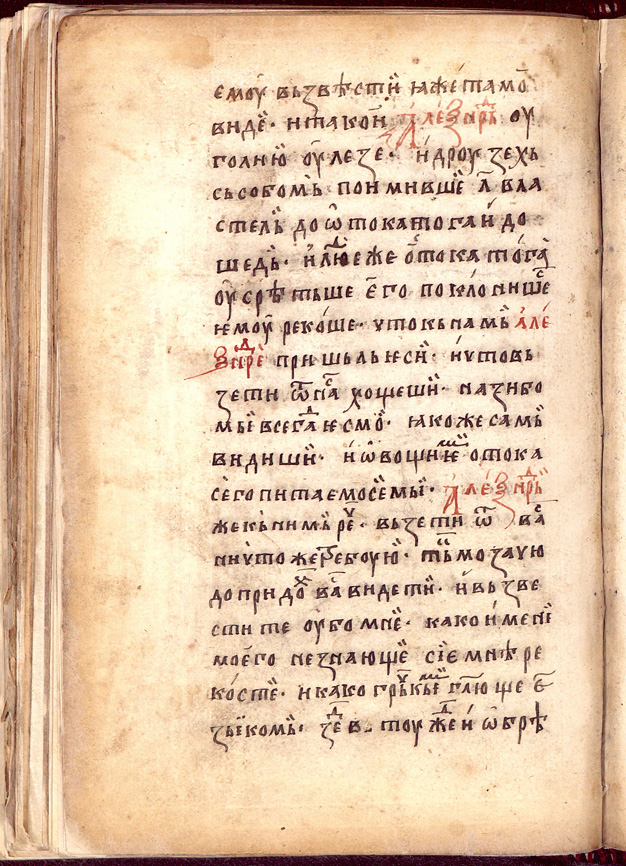 ємоу̀ вьзвѣстѝ ꙗже тамо̀
виде̏ · и тако и̏ а҆леѯⷣнрь оу
голню̀ оу҆лезе · и҆ дроузехь
сь собомь̀ поимивше̏ л҃ вла
стель̀ до ѡ҆тока того и҆ до
шедь̀ · и҆ люⷣє же ѡⷪ҇тока тога
оу҆срѣтьше є҆го поклонишеⷭ҇
ѥмоу̀ рекоше · уто кь намь̀ а҆ле
ѯⷣнрѐ пришьль ѥсѝ · и҆ уто вь
зети ѿ наⷭ҇ хощешѝ · нази бо
мы̏ всегⷣа ѥсмо̀ · ꙗкоже самь̀
видишѝ · и҆ ѡ҆вощиѥⷨ ѡтока
сего питаемо се мы̏ · а҆леѯⷣнрь
же кь нимь реⷱ҇ · вьзети ѿ ваⷭ҇
ниуто же требоую̀ · тьⷨмо за ую
до придоⷯ ваⷭ҇ видетѝ · и҆ вьзве
стите оубо мнѐ · како и҆мене
моего не знающе̏ сїе мнѣ ре
косте̏ · и како грьⷱкыⷨ гл҃юще є҆
зыкомь̀ · зеⷣ в тоу жеⷣ и҆ ѡ҆брѣ